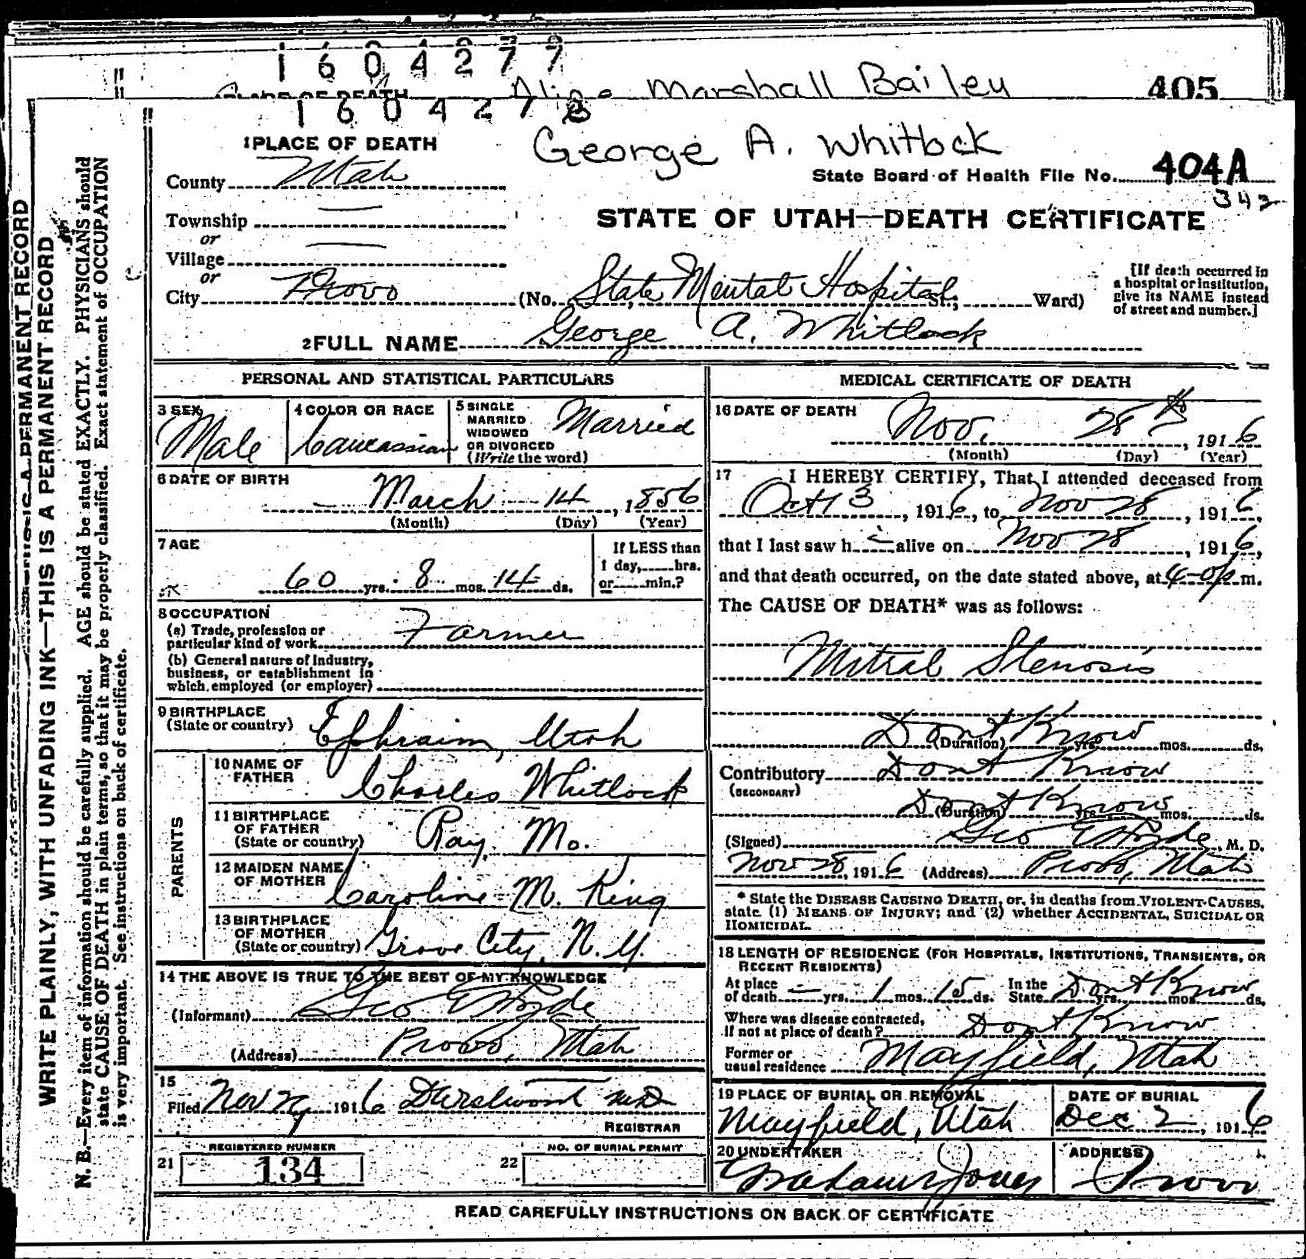 1 6 0 4 2 7 7
PLACE OF DEATH Alice Marshall Bailey 405
1 6 0 4 2 7 8
1 PLACE OF DEATH George A. Whitlock
State Board of Health File No. 404A
342
County Utah
STATE OF UTAH—DEATH CERTIFICATE
Township —
or
Village —
or
City Provo (No. State Mental Hospital St., Ward)
[If death occurred in
a hospital or institution,
give its NAME instead
of street and number.]
2 FULL NAME George A. Whitlock
PERSONAL AND STATISTICAL PARTICULARS
3 SEX Male
4 COLOR OR RACE Caucassian
5 SINGLE
MARRIED
WIDOWED
OR DIVORCED
(Write the word) Married
6 DATE OF BIRTH
March 14, 1856
(Month) (Day) (Year)
7 AGE
60 yrs. 8 mos. 14 ds.
If LESS than
1 day, hrs.
or min.?
8 OCCUPATION
(a) Trade, profession or
particular kind of work Farmer
(b) General nature of industry,
business, or establishment in
which employed (or employer)
9 BIRTHPLACE
(State or country) Ephraim, Utah
PARENTS
10 NAME OF
FATHER Charles Whitlock
11 BIRTHPLACE
OF FATHER
(State or country) Ray, Mo.
12 MAIDEN NAME
OF MOTHER Caroline M. King
13 BIRTHPLACE
OF MOTHER
(State or country) Grove City, N.Y.
14 THE ABOVE IS TRUE TO THE BEST OF MY KNOWLEDGE
(Informant) Geo E Hyde
(Address) Provo, Utah
15
Filed Nov 29 1916
REGISTRAR
REGISTERED NUMBER
21 134
NO. OF BURIAL PERMIT
22
MEDICAL CERTIFICATE OF DEATH
16 DATE OF DEATH
Nov. 28th, 1916
(Month) (Day) (Year)
17 I HEREBY CERTIFY, That I attended deceased from
Oct 13, 1916, to Nov 28, 1916,
that I last saw h i alive on Nov 28, 1916,
and that death occurred, on the date stated above, at 4-0 p m.
The CAUSE OF DEATH* was as follows:
Mitral Stenosis
Dont Know
(Duration) yrs. mos. ds.
Contributory Dont Know
(SECONDARY)
Dont Know
(Duration) yrs. mos. ds.
(Signed) Geo E Hyde, M. D.
Nov 28, 1916 (Address) Provo, Utah
* State the DISEASE CAUSING DEATH, or, in deaths from VIOLENT CAUSES,
state (1) MEANS OF INJURY; and (2) whether ACCIDENTAL, SUICIDAL OR
HOMICIDAL.
18 LENGTH OF RESIDENCE (FOR HOSPITALS, INSTITUTIONS, TRANSIENTS, OR
RECENT RESIDENTS)
At place
of death — yrs. 1 mos. 15 ds.
In the
State Dont Know yrs. mos. ds.
Where was disease contracted,
if not at place of death? Dont Know
Former or
usual residence Mayfield, Utah
19 PLACE OF BURIAL OR REMOVAL
Mayfield, Utah
DATE OF BURIAL
Dec 2, 1916
20 UNDERTAKER
Jones
ADDRESS
Provo
READ CAREFULLY INSTRUCTIONS ON BACK OF CERTIFICATE
WRITE PLAINLY, WITH UNFADING INK—THIS IS A PERMANENT RECORD
N. B.—Every item of information should be carefully supplied. AGE should be stated EXACTLY. PHYSICIANS should
state CAUSE OF DEATH in plain terms, so that it may be properly classified. Exact statement of OCCUPATION
is very important. See instructions on back of certificate.
IS A PERMANENT RECORD